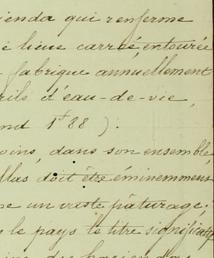 ienda qui renferme
é lieue carrée, entourée
fabrique annuellement
rils d'eau-de-vie,
nd 1st 88).
oins, dans son ensemble
llas doit être éminemment
e un vaste pâturage.
le pays le titre significatif